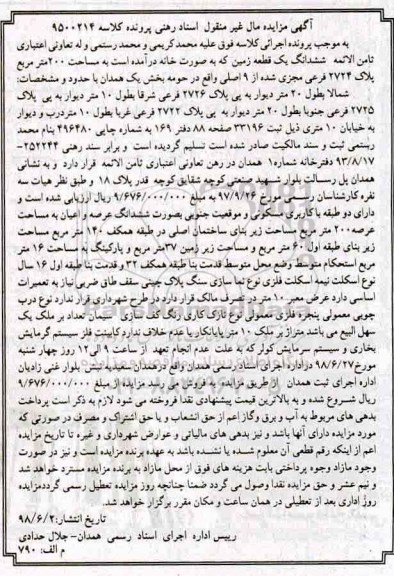 آگهی مزایده مال غیر منقول اسناد رهنی پرونده کلاسه ۹۵۰۰۲۱۴
به موجب پرونده اجرائی کلاسه فوق علیه محمد کریمی و محمد رستمی و له تعاونی اعتباری
ثامن الائمه ششدانگ یک قطعه زمین که به صورت خانه درآمده است به مساحت ۲۰۰متر مربع
پلاک ۲۷۲۴ فرعی مجزی شده از ۹ اصلی واقع در حومه بخش یک همدان با حدود و مشخصات:
شمالا بطول ۲۰ متر دیوار به پی پلاک ۲۷۲۶ فرعی شرقا بطول ۱۰ متر دیوار به پی پلاک
۲۷۲۵ فرعی جنوبا بطول ۲۰ متر دیوار به پی پلاک ۲۷۲۲ فرعی غربا بطول ۱۰ متردرب و دیوار
به خیابان ۱۰ متری ذیل ثبت ۳۳۱۹۶ صفحه ۸۸ دفتر ۱۶۹ به شماره چاپی ۴۹۶۴۸۰ بنام محمد
رستمی ثبت و سند مالکیت صادر شده است تسلیم گردیده است و برابر سند رهنی ۲۵۲۲۴۴-
۹۳/۸/۱۷ دفترخانه شماره۱ همدان در رهن تعاونی اعتباری ثامن الائمه قرار دارد و به نشانی
همدان پل رسالت بلوار شهید صنعتی کوچه شقایق کوچه قدر پلاک ۱۸ و طبق نظر هیات سه
نفره کارشناسان رسمی مورخ ۹۷/۹/۲۶ به مبلغ ۹/۶۷۶/۰۰۰/۰۰۰ ریال ارزیابی شده است و
دارای دو طبقه با کاربری مسکونی و موقعیت جنوبی بصورت ششدانگ عرصه و اعیان به مساحت
عرصه۲۰۰ متر مربع مساحت زیر بنای ساختمان اصلی در طبقه همکف ۱۴۰ متر مربع مساحت
زیر بنای طبقه اول ۶۰ متر مربع و مساحت زیر زمین ۳۷متر مربع و پارکینگ به مساحت ۱۶ متر
مربع استحکام متوسط وضع محل متوسط قدمت بنا طبقه همکف ۳۲ و قدمت بنا طبقه اول ۱۶ سال
نوع اسکلت نیمه اسکلت فلزی نوع نما سازی سنگ پلاک چینی سقف طاق ضربی نیاز به تعمیرات
اساسی دارد عرض معبر ۱۰ متر در تصرف مالک قرار دارد در طرح شهرداری قرار ندارد نوع درب
چوبی معمولی پنجره فلزی معمولی نوع نازک کاری رنگ کف سازی سیمان تعداد بر ملک یک
سهل البیع می باشد متراژ بر ملک ۱۰ متر پایانکار یا عدم خلاف ندارد کابینت فلز سیستم گرمایش
بخاری و سیستم سرمایش کولر که به علت عدم انجام تعهد از ساعت ۹ الی۱۲ روز چهار شنبه
مورخ۹۸/۶/۲۷ دراداره اجرای اسناد رسمی همدان واقع درهمدان سعیدیه نبش بلوار غنی زادیان
اداره اجرای ثبت همدان از طریق مزایده به فروش می رسد مزایده از مبلغ ۹/۶۷۶/۰۰۰/۰۰۰
ریال شروع شده و به بالاترین قیمت پیشنهادی نقدا فروخته می شود لازم به ذکر است پرداخت
بدهی های مربوط به آب و برق وگاز اعم از حق انشعاب و یا حق اشتراک و مصرف در صورتی که
مورد مزایده دارای آنها باشد و نیز بدهی های مالیاتی و عوارض شهرداری و غیره تا تاریخ مزایده
اعم از اینکه رقم قطعی آن معلوم شده یا نشده باشد به عهده برنده مزایده است و نیز در صورت
وجود مازاد وجوه پرداختی بابت هزینه های فوق از محل مازاد به برنده مزایده مسترد خواهد شد
و نیم عشر و حق مزایده نقدا وصول می گردد ضمنا چنانچه روز مزایده تعطیل رسمی گرددمزایده
روز اداری بعد از تعطیلی در همان ساعت و مکان مقرر برگزار خواهد شد.
تاریخ انتشار:۹۸/۶/۲
رییس اداره اجرای اسناد رسمی همدان- جلال حدادی
م الف: ۷۹۰